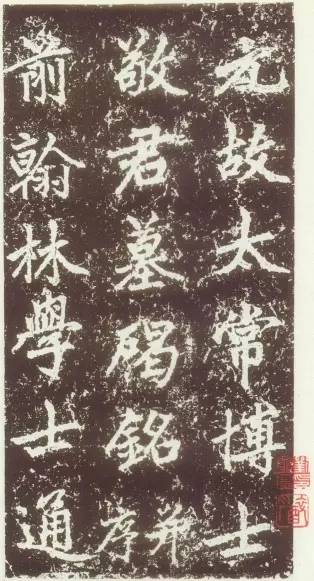 元故太常博士
敬君墓碣銘并序
前翰林學士通